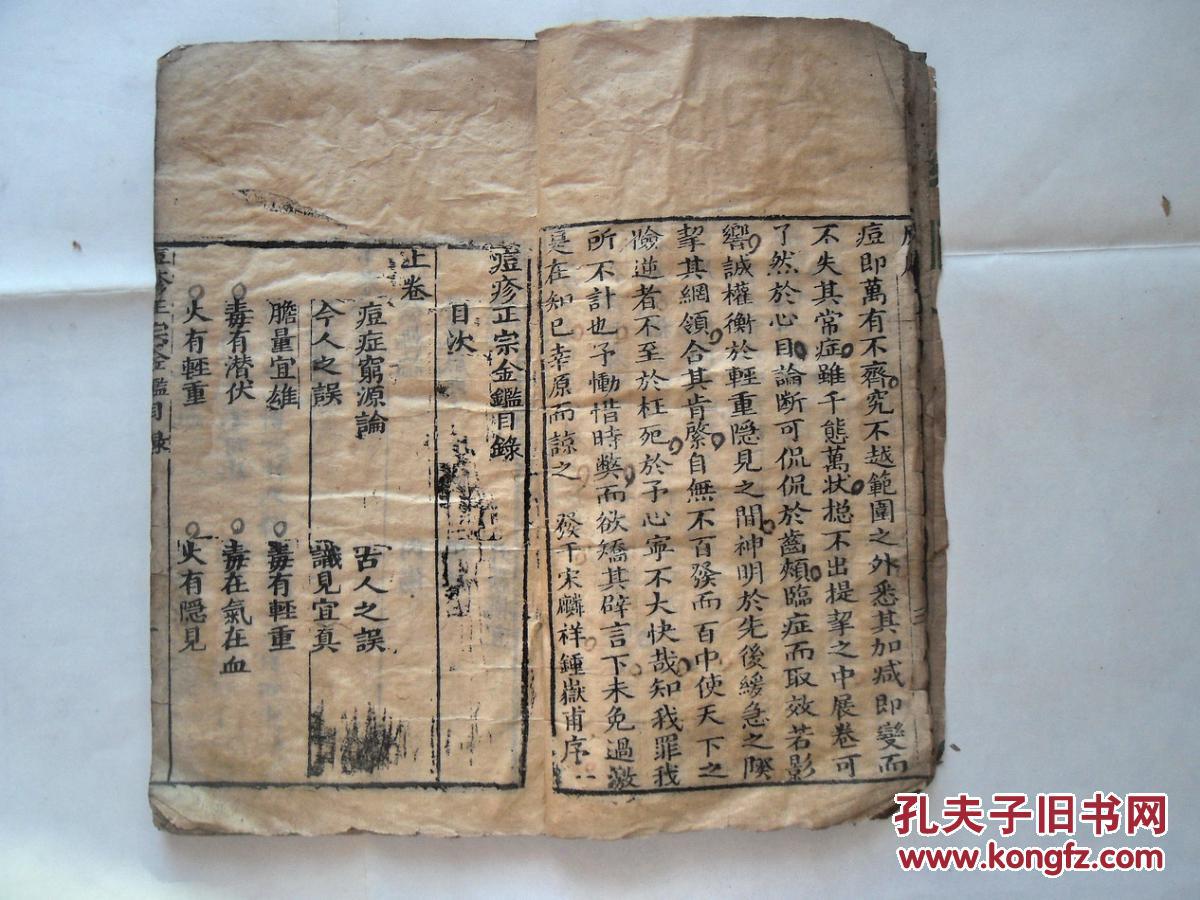 痘即萬有不齊究不越範圍之外悉其加减即變而
不失其常症雖千態萬状摠不出提挈之中展卷可
了然於心目論断可侃侃於齒頰臨症而取效若影
響誠權衡於輕重隐見之間神明於先後緩急之際
挈其綱領合其肯綮自無不百發而百中使天下之
險逆者不至於枉死於予心寧不大快哉知我罪我
所不計也予慟惜時弊而欲矯其辟言下未免過激
是在知已幸原而諒之 發千宋麟祥鍾嶽甫序
痘疹正宗金鑑目錄
目次
上卷
痘症窮源論 古人之誤
今人之誤 識見宜真
膽量宜雄 毒有輕重
毒有潜伏 毒在氣在血
火有輕重 火有隐見
痘疹正宗金鑑目錄
孔夫子旧书网
www.kongfz.com